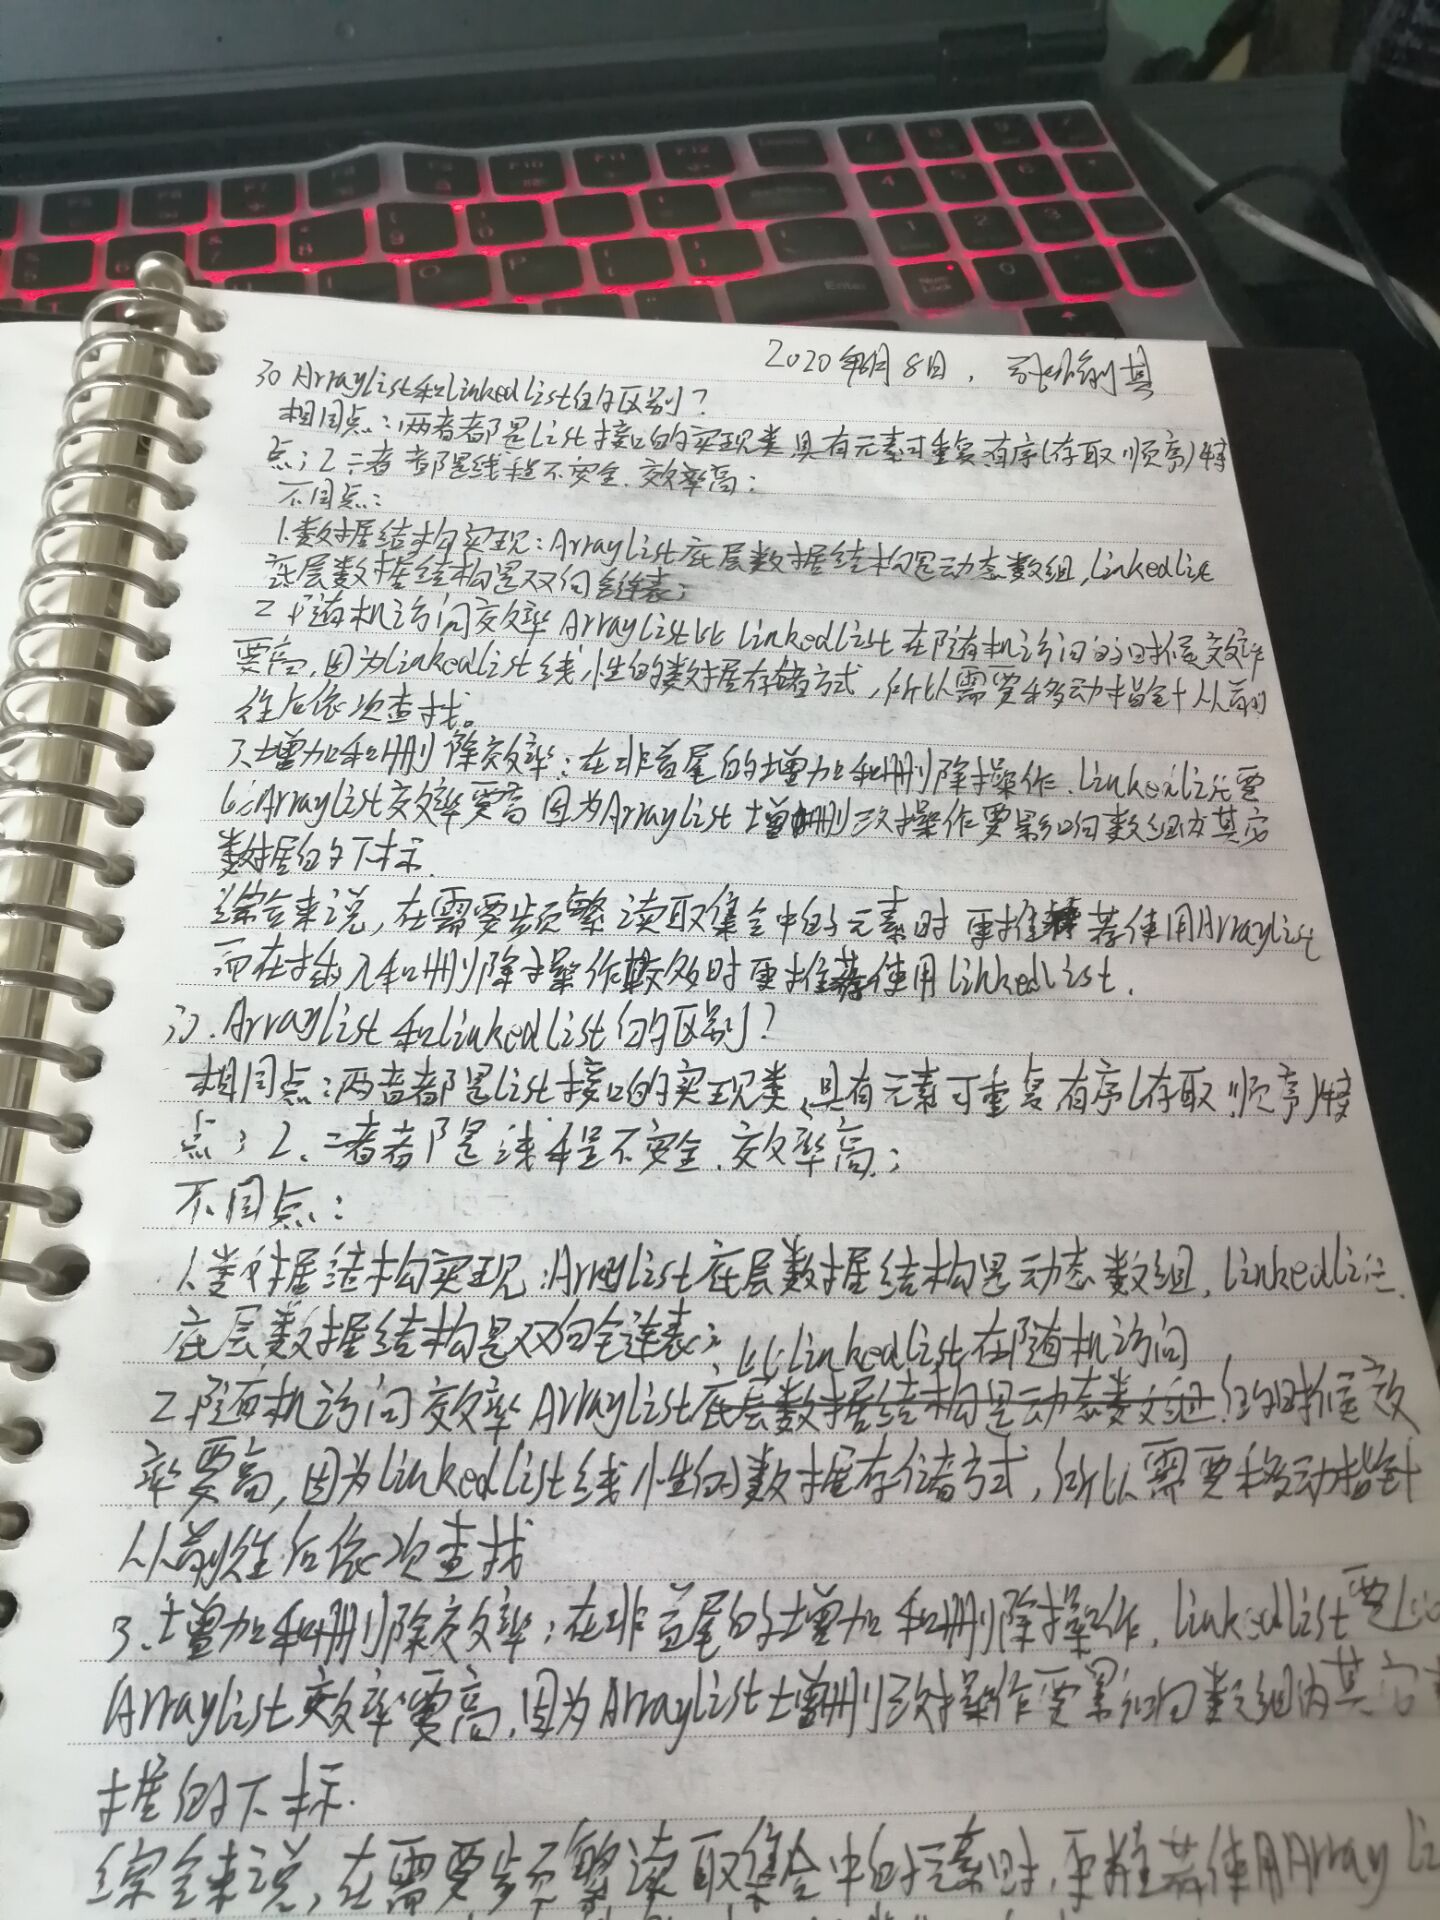 F9 F10 F11 F12
7 8 9
4 5 6
1 2 3
O P Enter Num Lock 0
2020年6月8日,
30 ArrayList和LinkedList的区别?
相同点:两者都是List接口的实现类,具有元素可重复,有序(存取顺序)特
点;2 二者都是线程不安全,效率高;
不同点:
1.数据结构实现:ArrayList底层数据结构是动态数组,LinkedList
底层数据结构是双向链表;
2.随机访问效率 ArrayList比LinkedList在随机访问的时候效率
要高,因为LinkedList线性的数据存储方式,所以需要移动指针从前
往后依次查找。
3.增加和删除效率:在非首尾的增加和删除操作,LinkedList要
比ArrayList效率要高,因为ArrayList增删改操作要影响数组内其它
数据的下标.
综合来说,在需要频繁读取集合中的元素时 更推荐使用ArrayList
而在插入和删除操作较多时更推荐使用LinkedList.
30.ArrayList和LinkedList的区别?
相同点:两者都是List接口的实现类,具有元素可重复有序(存取顺序)特
点;2、二者都是线程不安全,效率高;
不同点:
1.数据结构实现:ArrayList底层数据结构是动态数组,LinkedList
底层数据结构是双向链表;
比LinkedList在随机访问
2.随机访问效率ArrayList底层数据结构是动态数组的时候效
率要高,因为LinkedList线性的数据存储方式,所以需要移动指针
从前往后依次查找
3.增加和删除效率:在非首尾的增加和删除操作,LinkedList要比
ArrayList效率要高,因为ArrayList增删改操作要影响数组内其它
据的下标.
综合来说,在需要频繁读取集合中的元素时,更推荐使用ArrayLi